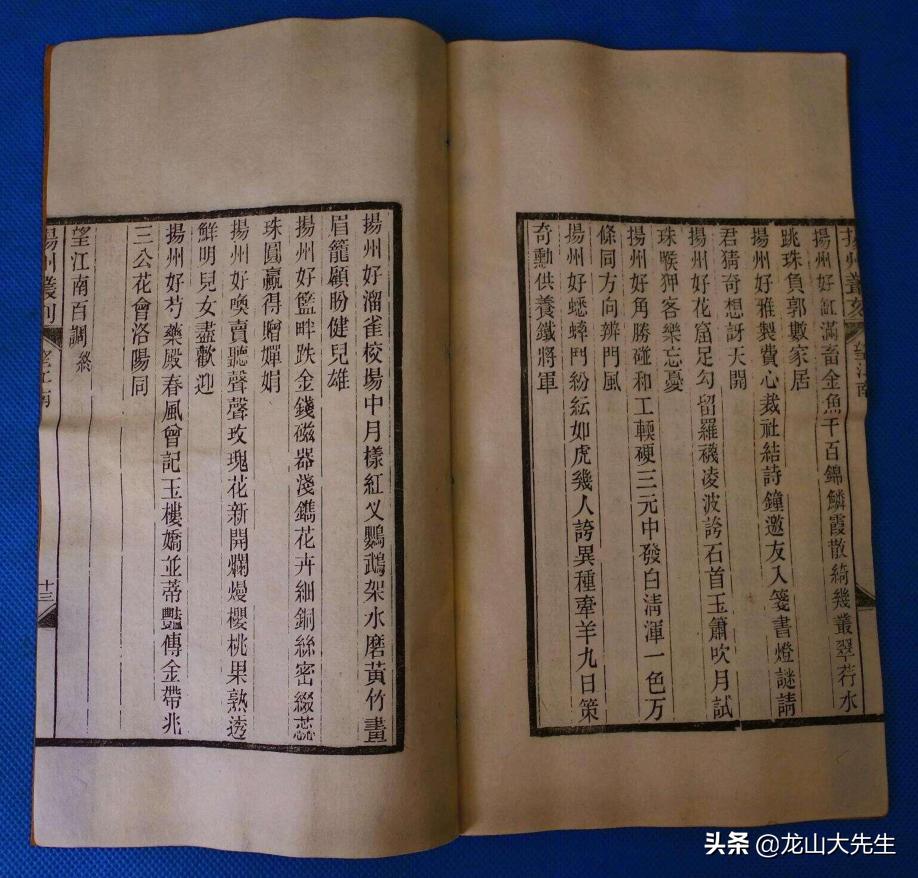 揚州叢刻　望江南
揚州好缸滿畜金魚千百錦鱗霞散綺幾叢翠荇水
跳珠負郭數家居
揚州好雅製費心裁社結詩鐘邀友入箋書燈謎請
君猜奇想訝天開
揚州好花窟足勾留羅襪凌波誇石首玉簫吹月試
珠喉狎客樂忘憂
揚州好角勝碰和工輭硬三元中發白淸渾一色万
條同方向辨門風
揚州好蟋蟀鬥紛紜如虎幾人誇異種牽羊九日策
奇勳供養鐵將軍
揚州好溜雀校場中月樣紅叉鸚鵡架水磨黃竹畫
眉籠顧盼健兒雄
揚州好籃畔跌金錢磁器淺鐫花卉細銅絲密綴蕊
珠圓贏得贈嬋娟
揚州好喚賣聽聲聲玫瑰花新開爛熳櫻桃果熟透
鮮明兒女盡歡迎
揚州好芍藥殿春風曾記玉樓嬌並蒂豔傳金帶兆
三公花會洛陽同
望江南百調終
揚州叢刻　望江南　十三
头条 @龙山大先生